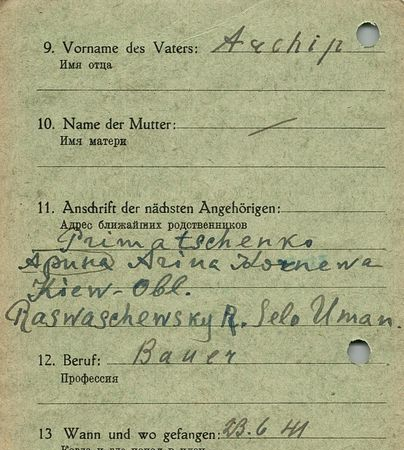 9. Vorname des Vaters: Archip
Имя отца
10. Name der Mutter: —
Имя матери
11. Anschrift der nächsten Angehörigen:
Адрес ближайших родственников
Primatschenko
Арина Arina Kornewa
Kiew-Obl.
Raswaschewsky R. Selo Uman.
12. Beruf: Bauer
Профессия
13 Wann und wo gefangen: 23.6 41
Когда и где попал в плен